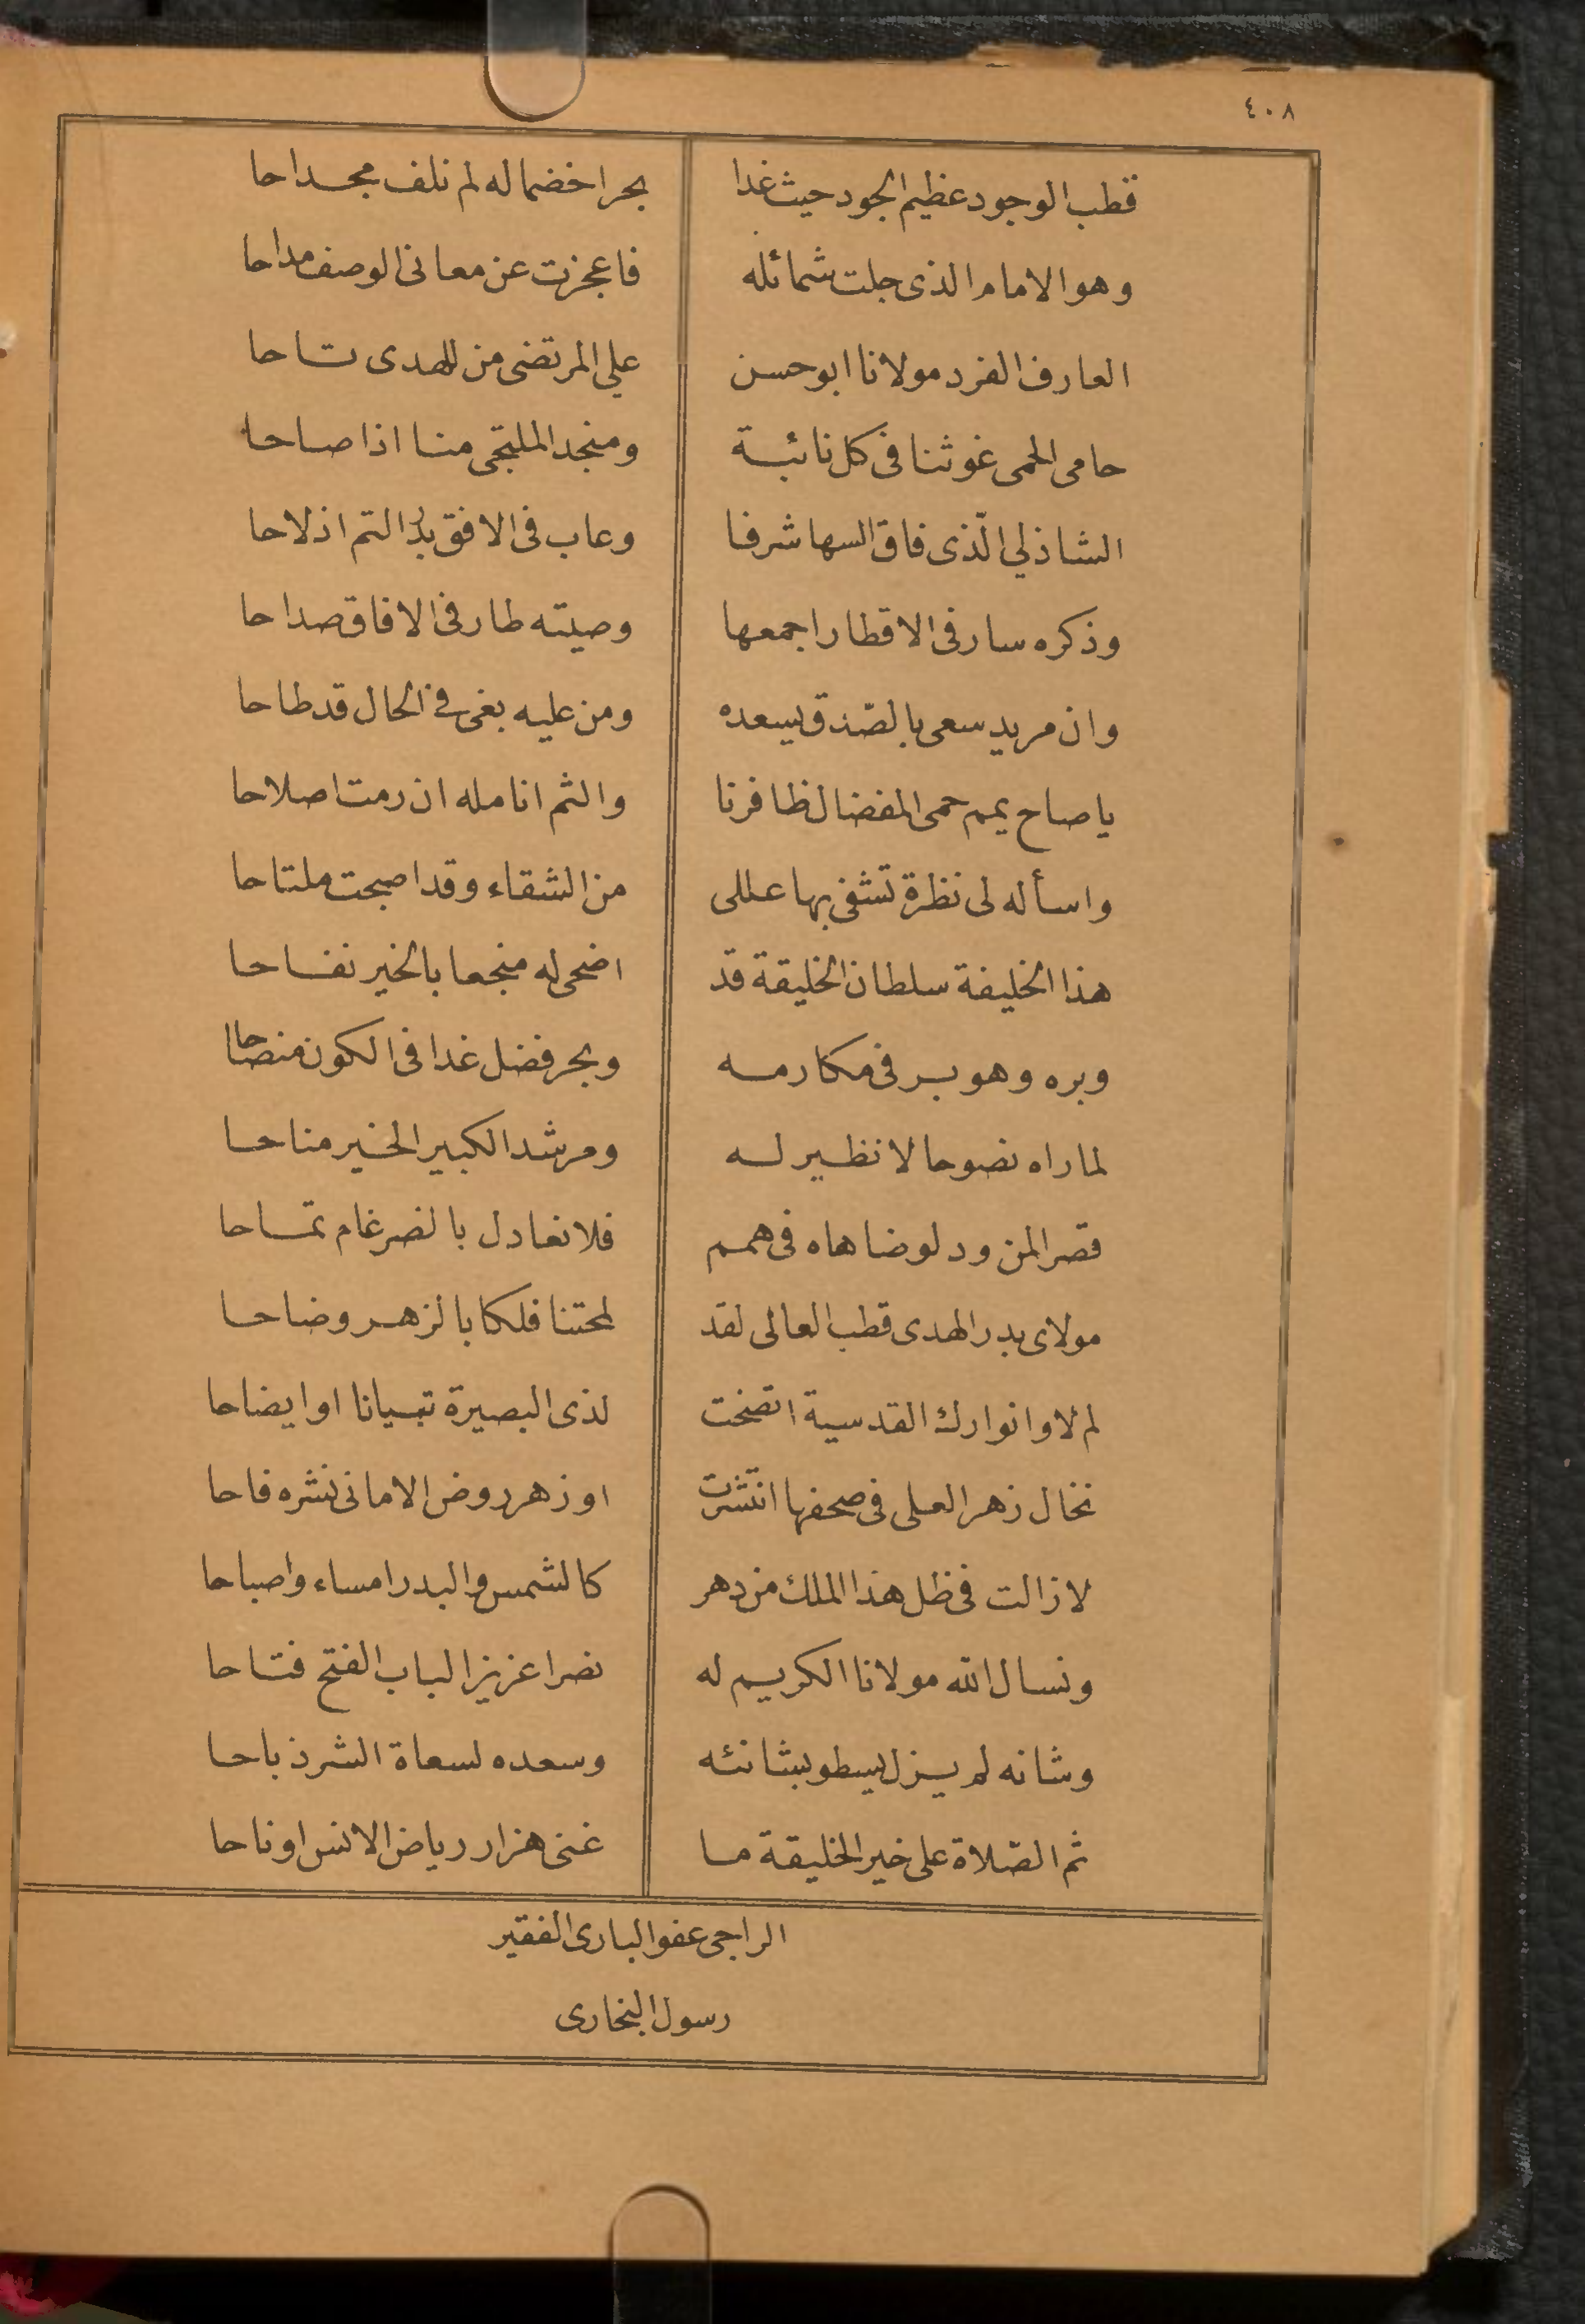 ٤٠٨
قطب الوجود عظيم الجود حيث غدا بحرا خضما له لم نلف مجداحا
وهو الامام الذى جلت شمائله فاعجزت عن معانى الوصف مداحا
العارف الفرد مولانا ابو حسن على المرتضى من للهدى تاحا
حامى الحمى غوثنا فى كل نائبة ومنجد الملتجى منا اذا صاحا
الشاذلي الّذى فاق السها شرفا وعاب فى الافق بدر التم اذ لاحا
وذكره سار فى الاقطار اجمعها وصيته طار فى الافاق صداحا
وان مريد سعى بالصّدق يسعده ومن عليه بغى فى الحال قد طاحا
يا صاح يمم حمى المفضال ظافرنا والثم انامله ان رمت اصلاحا
واسأله لى نظرة تشفى بها عللى من الشقاء وقد اصبحت ملتاحا
هذا الخليفة سلطان الخليقة قد اضحى له منجعا بالخير نفاحا
وبره وهو بر فى مكارمه وبحر فضل غدا فى الكون منصاحا
لما راه نصوحا لا نظير له ومرشد الكبير الخير مناحا
قصر المن ود لو ضاهاه فى همم فلا نعادل بالضرغام تمساحا
مولاى بدر الهدى قطب العالى لقد لمحتنا فلكا بالزهر وضاحا
لم لا وانوارك القدسية اتضحت لذى البصيرة تبيانا او ايضاحا
نخال زهر العلى فى صحفها انتثرت او زهر روض الامانى نشره فاحا
لا زالت فى ظل هذا الملك مزدهر كالشمس والبدر امساء واصباحا
ونسال الله مولانا الكريم له نصرا عزيزا لباب الفتح فتاحا
وشانه لم يزل يسطو بشانئه وسعده لسعاة الشر ذباحا
ثم الصّلاة على خير الخليقة ما غنى هزار رياض الانس او ناحا
الراجى عفو البارى الفقير
رسول البخارى